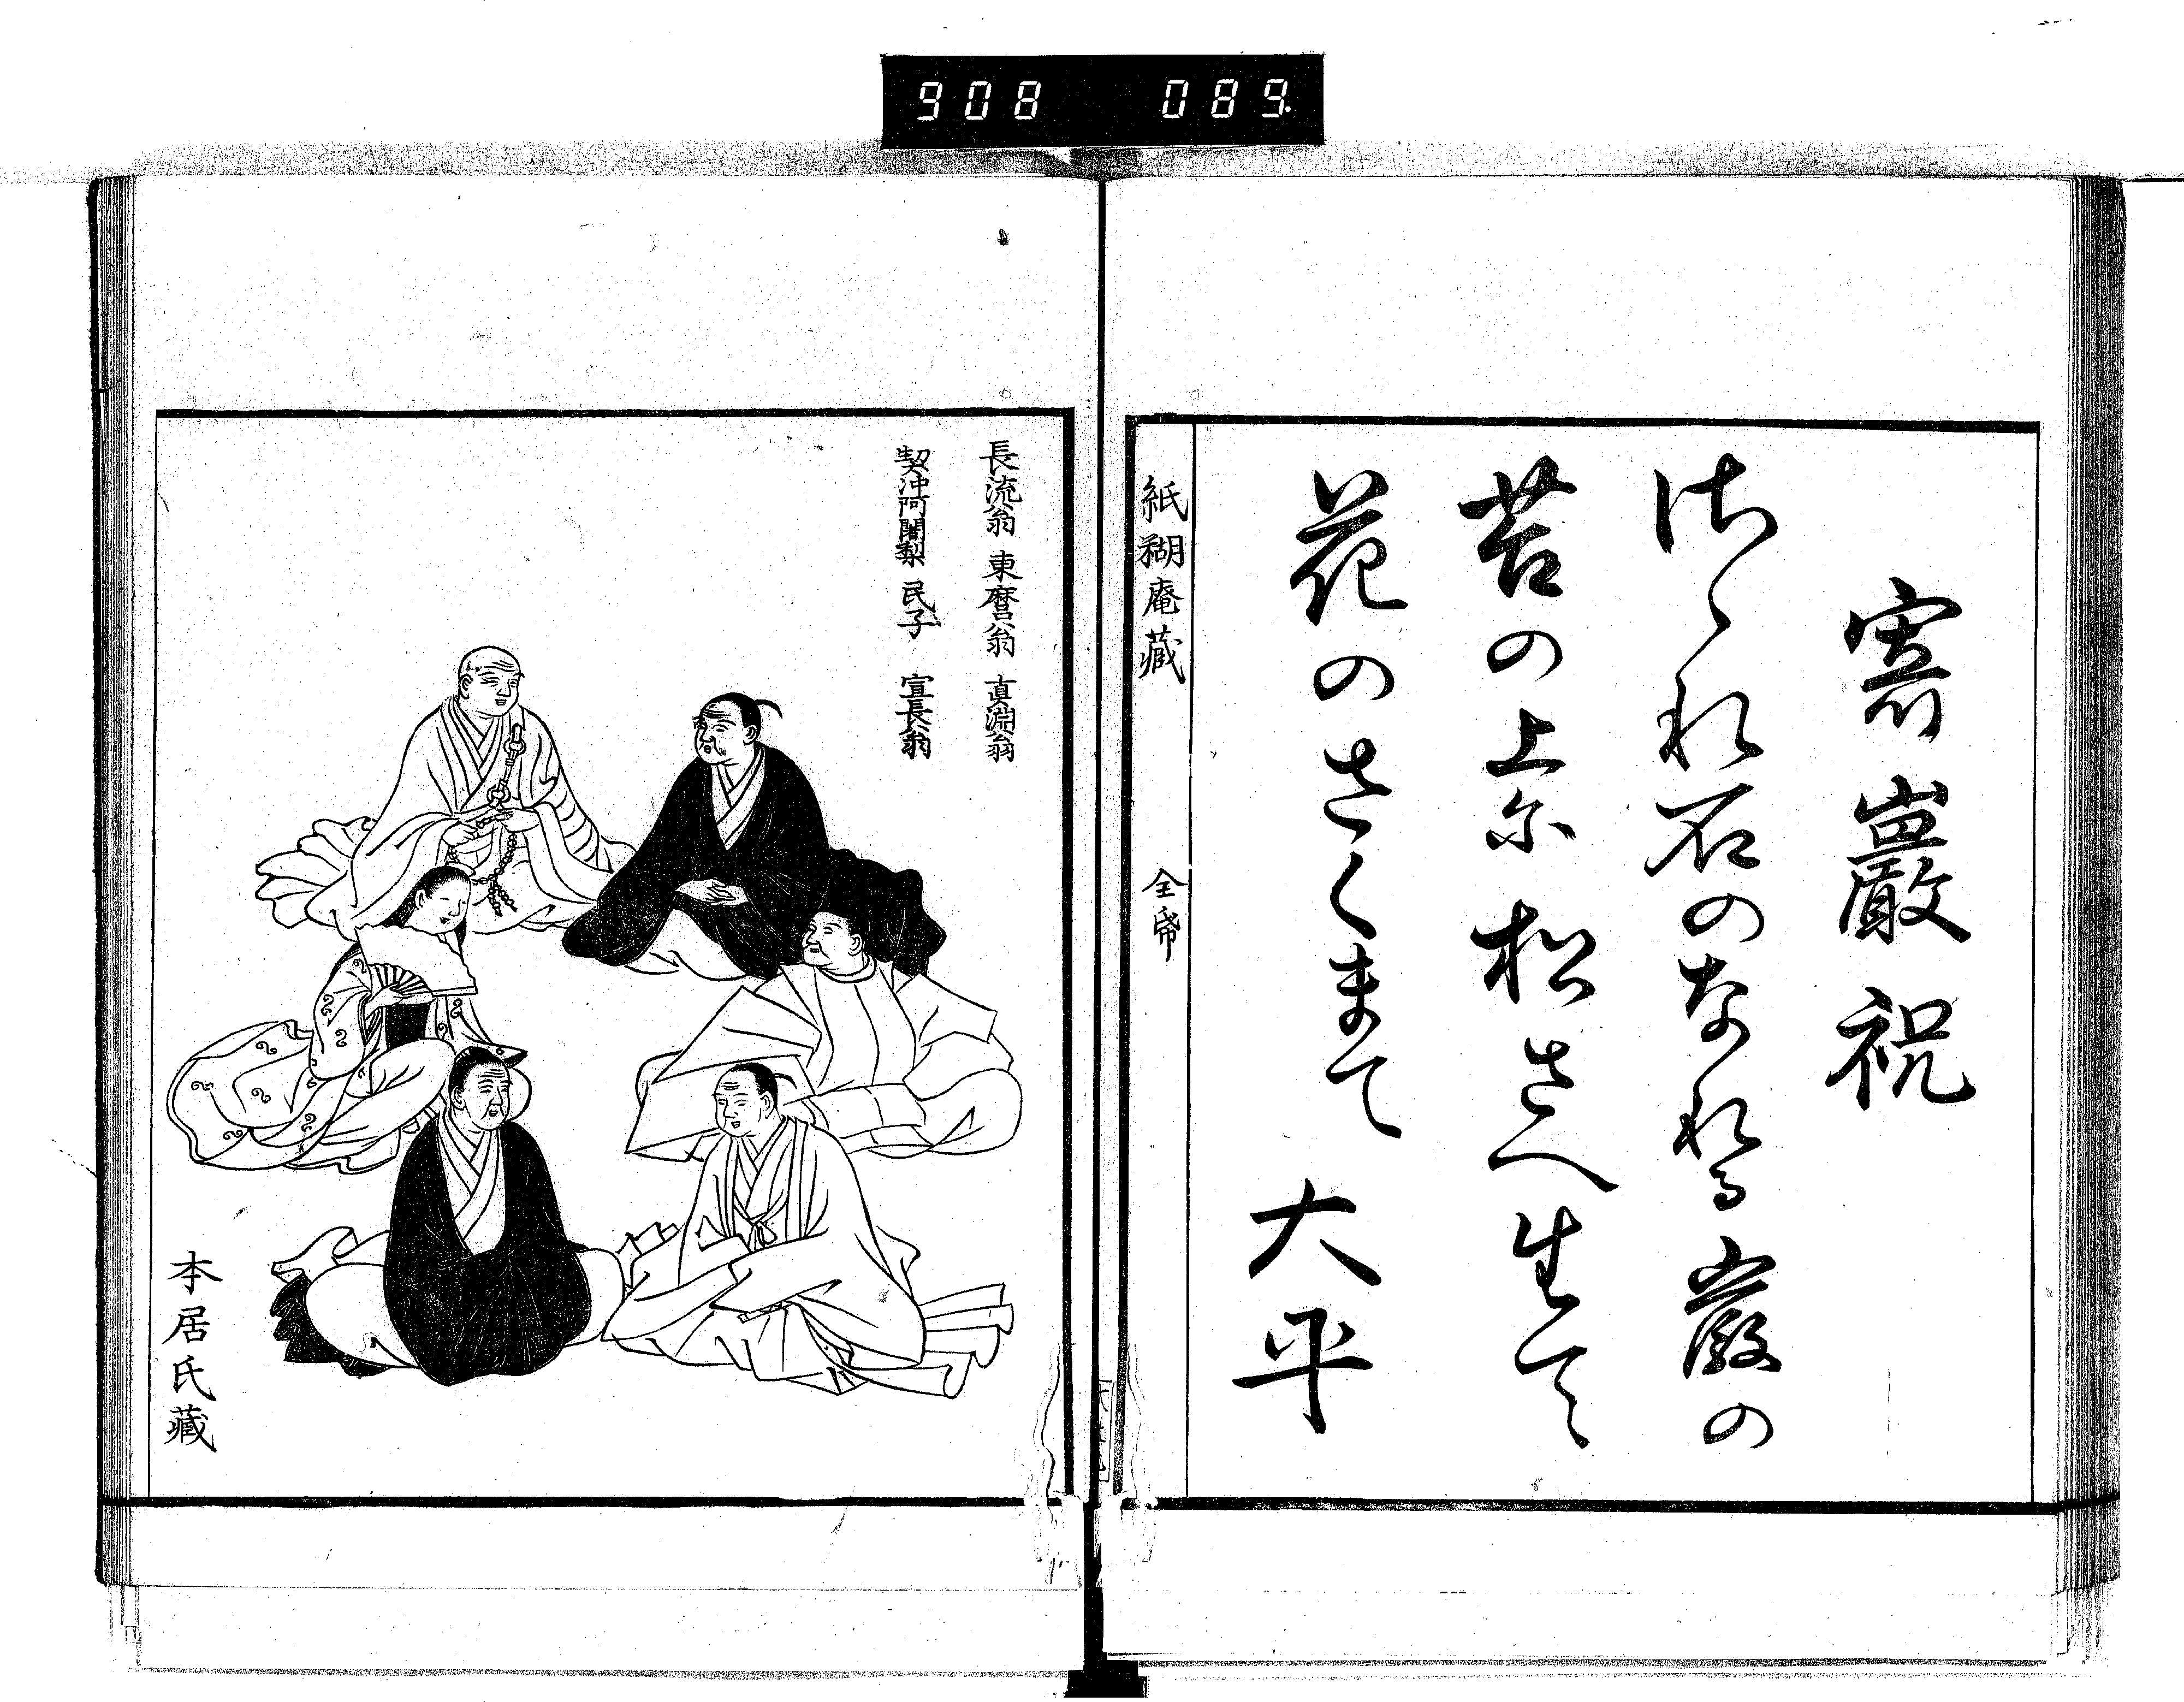 908 089.
寄巖祝
さゝれ石のなれる巌の
苔の上尓松さへ生て
花のさくまて 大平
紙糊庵藏 全帋
長流翁 東麿翁 真淵翁
契沖阿闍梨 民子 宣長翁
本居氏藏